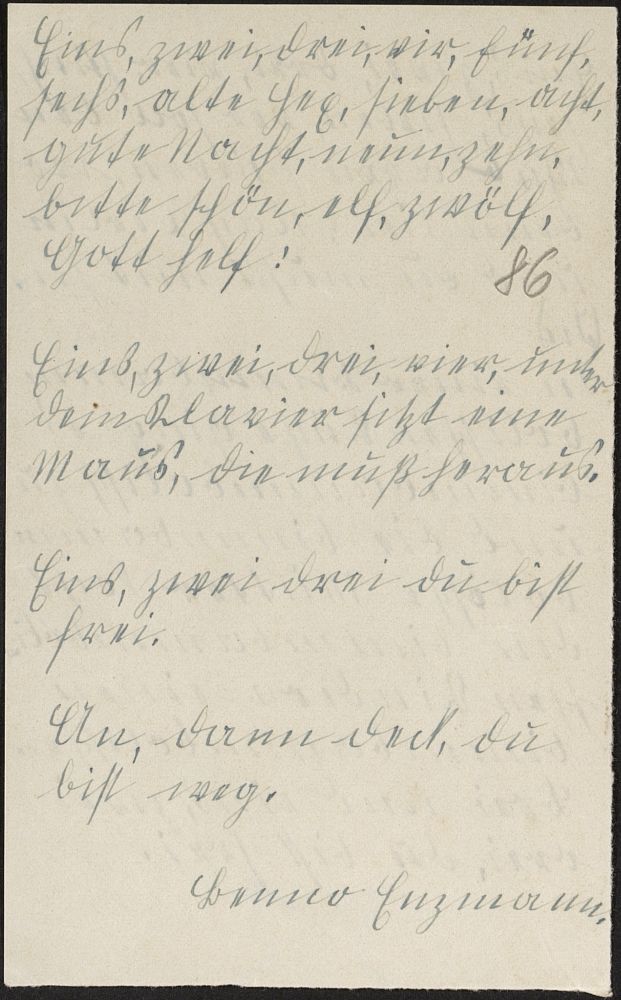 Eins, zwei, drei, vir, fünf,
sechs, alte Hex, sieben, acht,
gute Nacht, neun, zehn,
bitte schön, elf, zwölf,
Gott helf!
86
Eins, zwei, drei, vier, unter
dem Klavier sitzt eine
Maus, die muß heraus.
Eins, zwei drei du bist
frei.
An, dann deck, du
bist weg.
Benno Enzmann.